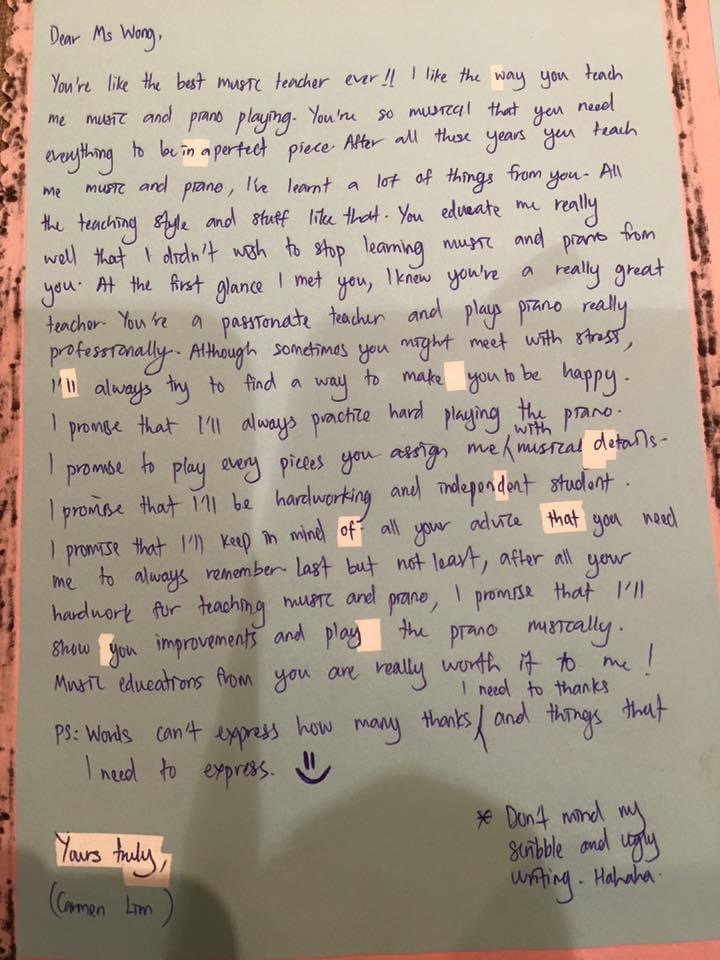 Dear Ms Wong,
You're like the best music teacher ever!! I like the way you teach
me music and piano playing. You're so musical that you need
everything to be in a perfect piece. After all these years you teach
me music and piano, I've learnt a lot of things from you. All
the teaching style and stuff like that. You educate me really
well that I didn't wish to stop learning music and piano from
you. At the first glance I met you, I knew you're a really great
teacher. You're a passionate teacher and plays piano really
professionally. Although sometimes you might meet with stress,
I'll always try to find a way to make you to be happy.
I promise that I'll always practice hard playing the piano.
I promise to play every pieces you assign me with musical details.
I promise that I'll be hardworking and independent student.
I promise that I'll keep in mind of all your advice that you need
me to always remember. Last but not least, after all your
hardwork for teaching music and piano, I promise that I'll
show you improvements and play the piano musically.
Music educations from you are really worth it to me!
PS: Words can't express how many thanks I need to thanks and things that
I need to express.
Yours truly,
(Carmen Lim)
* Don't mind my
scribble and ugly
writing. Hahaha.